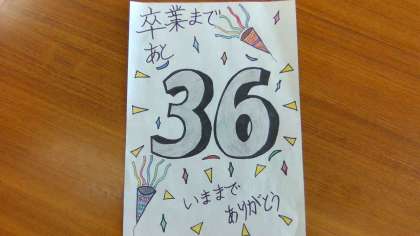 卒業まで
あと
36
いままで
ありがとう